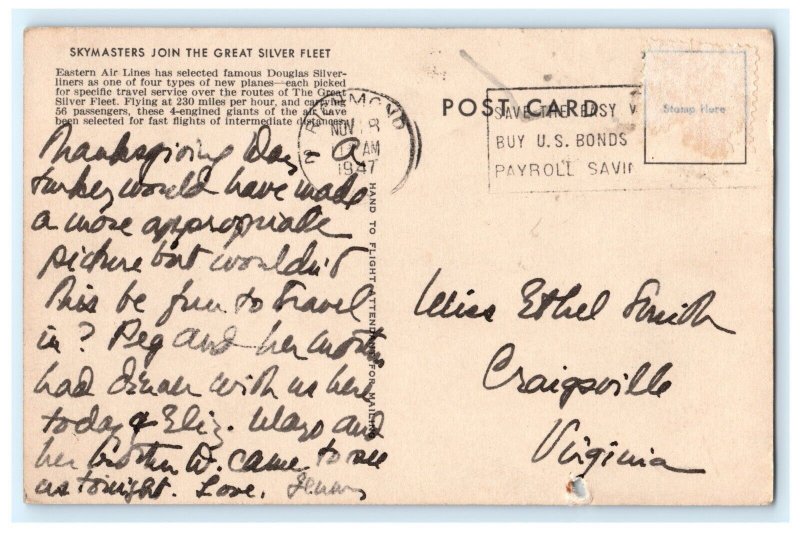 SKYMASTERS JOIN THE GREAT SILVER FLEET
Eastern Air Lines has selected famous Douglas Silver-
liners as one of four types of new planes—each picked
for specific travel service over the routes of The Great
Silver Fleet. Flying at 230 miles per hour, and carrying
56 passengers, these 4-engined giants of the air have
been selected for fast flights of intermediate distances.
POST CARD
Stamp Here
RICHMOND
NOV 28
AM
1947
SAVE THE EASY W
BUY U.S. BONDS
PAYROLL SAVIN
HAND TO FLIGHT ATTENDANT FOR MAILING
Thanksgiving Day A
turkey would have made
a more appropriate
picture but wouldn't
this be fun to travel
in? Peg and her mother
had dinner with us here
today & Eliz. Mayo and
her brother W. came to see
us tonight. Love,
Miss Ethel Smith
Craigsville
Virginia